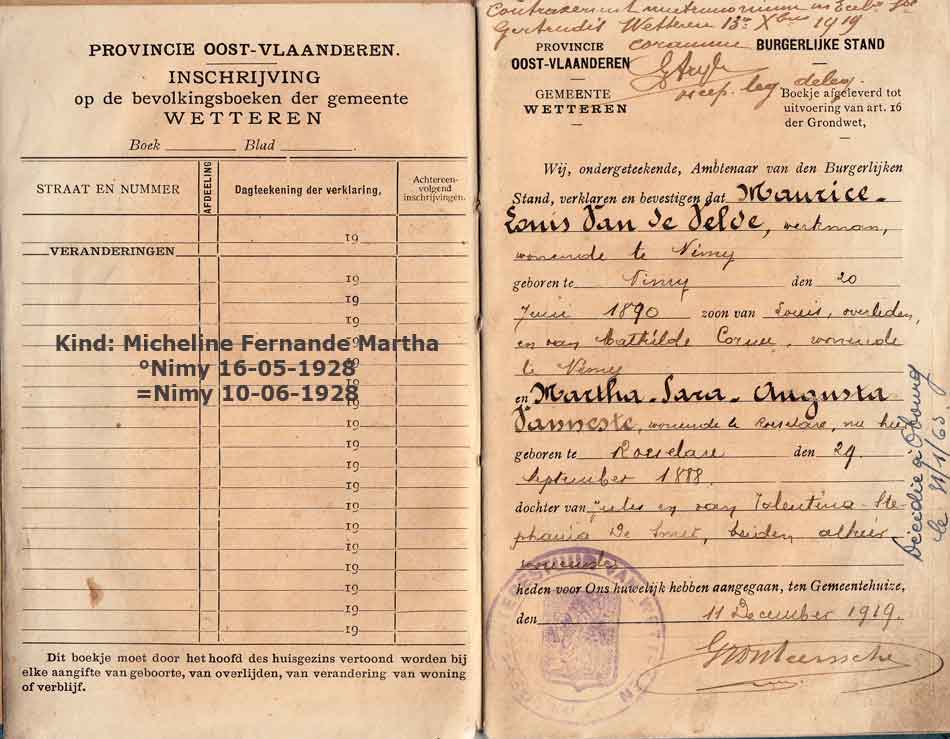 PROVINCIE OOST-VLAANDEREN.
INSCHRIJVING
op de bevolkingsboeken der gemeente
WETTEREN
Boek Blad .
STRAAT EN NUMMER
AFDEELING
Dagteekening der verklaring,
Achtereen-
volgend
inschrijvingen.
19
VERANDERINGEN
19
19
19
Kind: Micheline Fernande Martha
°Nimy 16-05-1928
=Nimy 10-06-1928
19
19
19
19
19
19
19
19
19
19
19
19
19
Dit boekje moet door het hoofd des huisgezins vertoond worden bij
elke aangifte van geboorte, van overlijden, van verandering van woning
of verblijf.
matrimonium in
Gertrudis Wetteren 13 X 1919
coram
deleg.
PROVINCIE
OOST-VLAANDEREN
GEMEENTE
WETTEREN
BURGERLIJKE STAND
Boekje afgeleverd tot
uitvoering van art. 16
der Grondwet,
Wij, ondergeteekende, Ambtenaar van den Burgerlijken
Stand, verklaren en bevestigen dat Maurice-
Louis Van de Velde, werkman,
wonende te Nimy
geboren te Nimy den 20
Juni 1890 zoon van Louis, overleden,
en van Mathilde Cornu, wonende
te Nimy
en Martha-Sara-Augusta
Vanneste, wonende te Roeselare, nu hier
geboren te Roeselare den 29
September 1888
dochter van Jules en van Valentina Ste-
phania De Smet, beiden alhier
wonende
heden voor Ons huwelijk hebben aangegaan, ten Gemeentehuize,
den 11 December 1919.
Décédée à Obourg
le 31/1/63